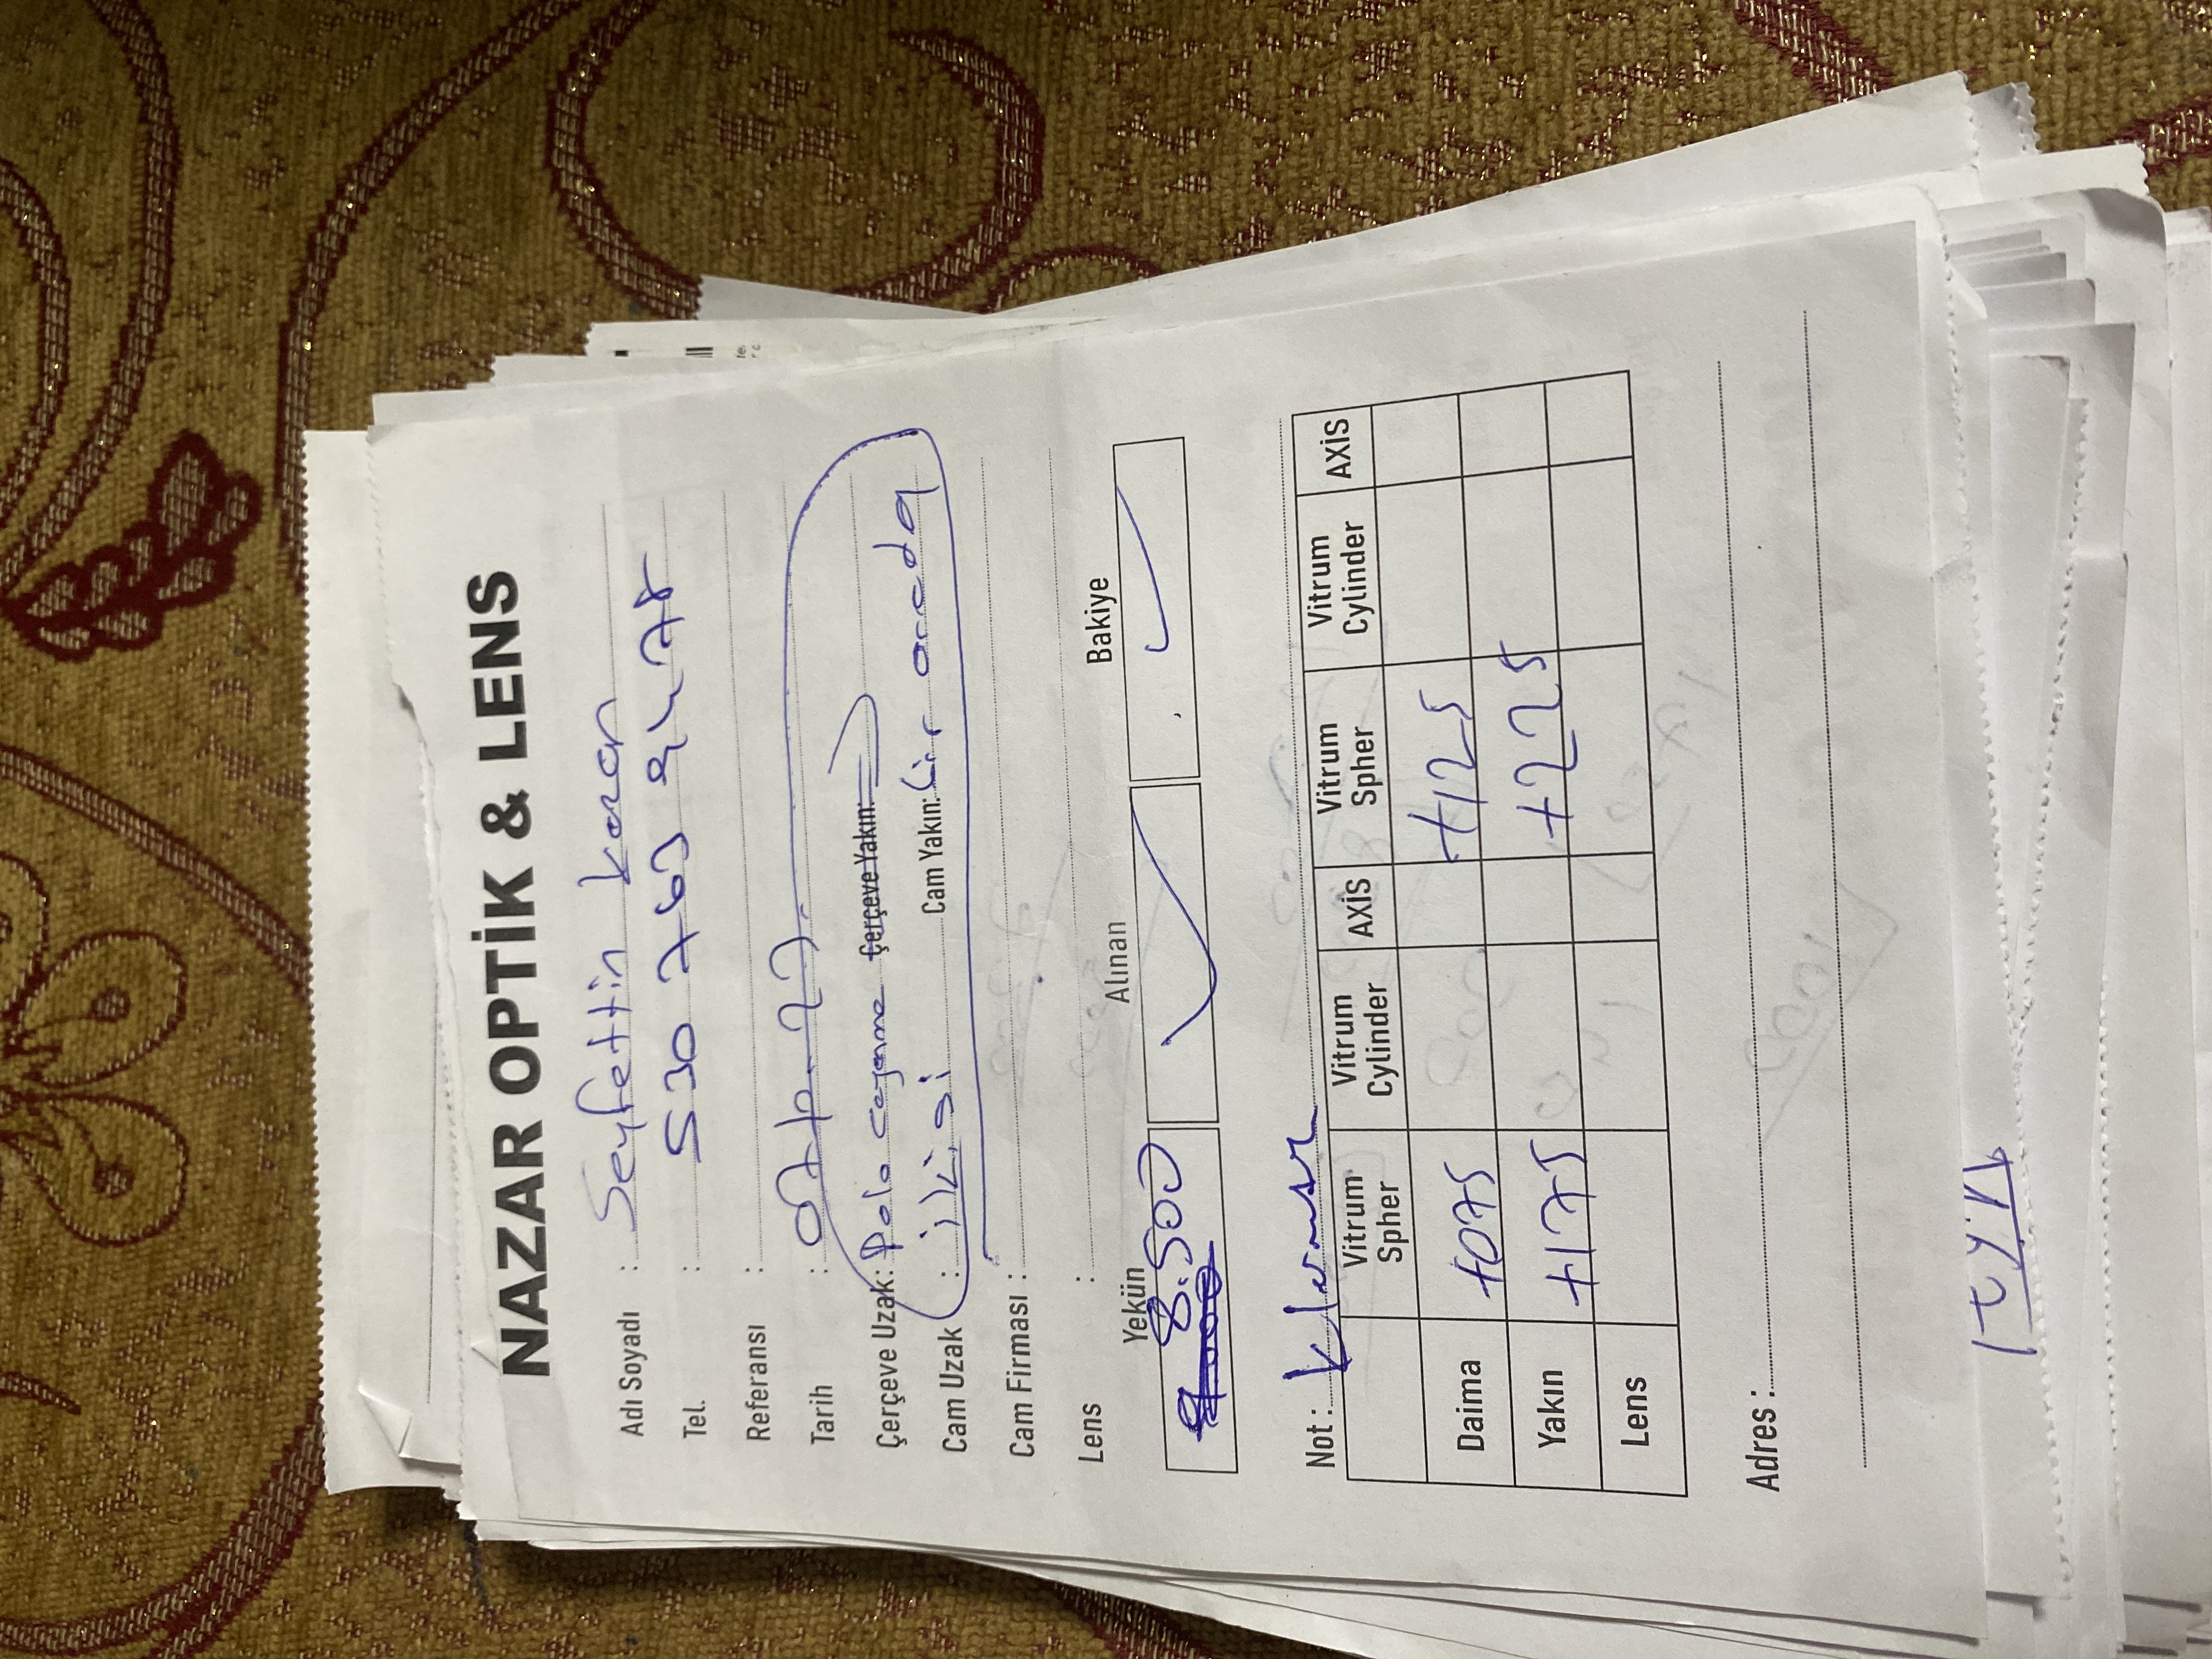 NAZAR OPTİK & LENS
Adı Soyadı : Seyfettin Kazan
Tel. : 530 763 94 78
Referansı :
Tarih :
Çerçeve Uzak: Polo Çerçeve Yakın:
Cam Uzak : ikisi Cam Yakın: bir arada
Cam Firması :
Lens :
Yekün Alınan Bakiye
8.500
9.000
Not :
Vitrum Spher Vitrum Cylinder AXİS Vitrum Spher Vitrum Cylinder AXİS
Daima +075 +125
Yakın +175 +225
Lens
Adres :